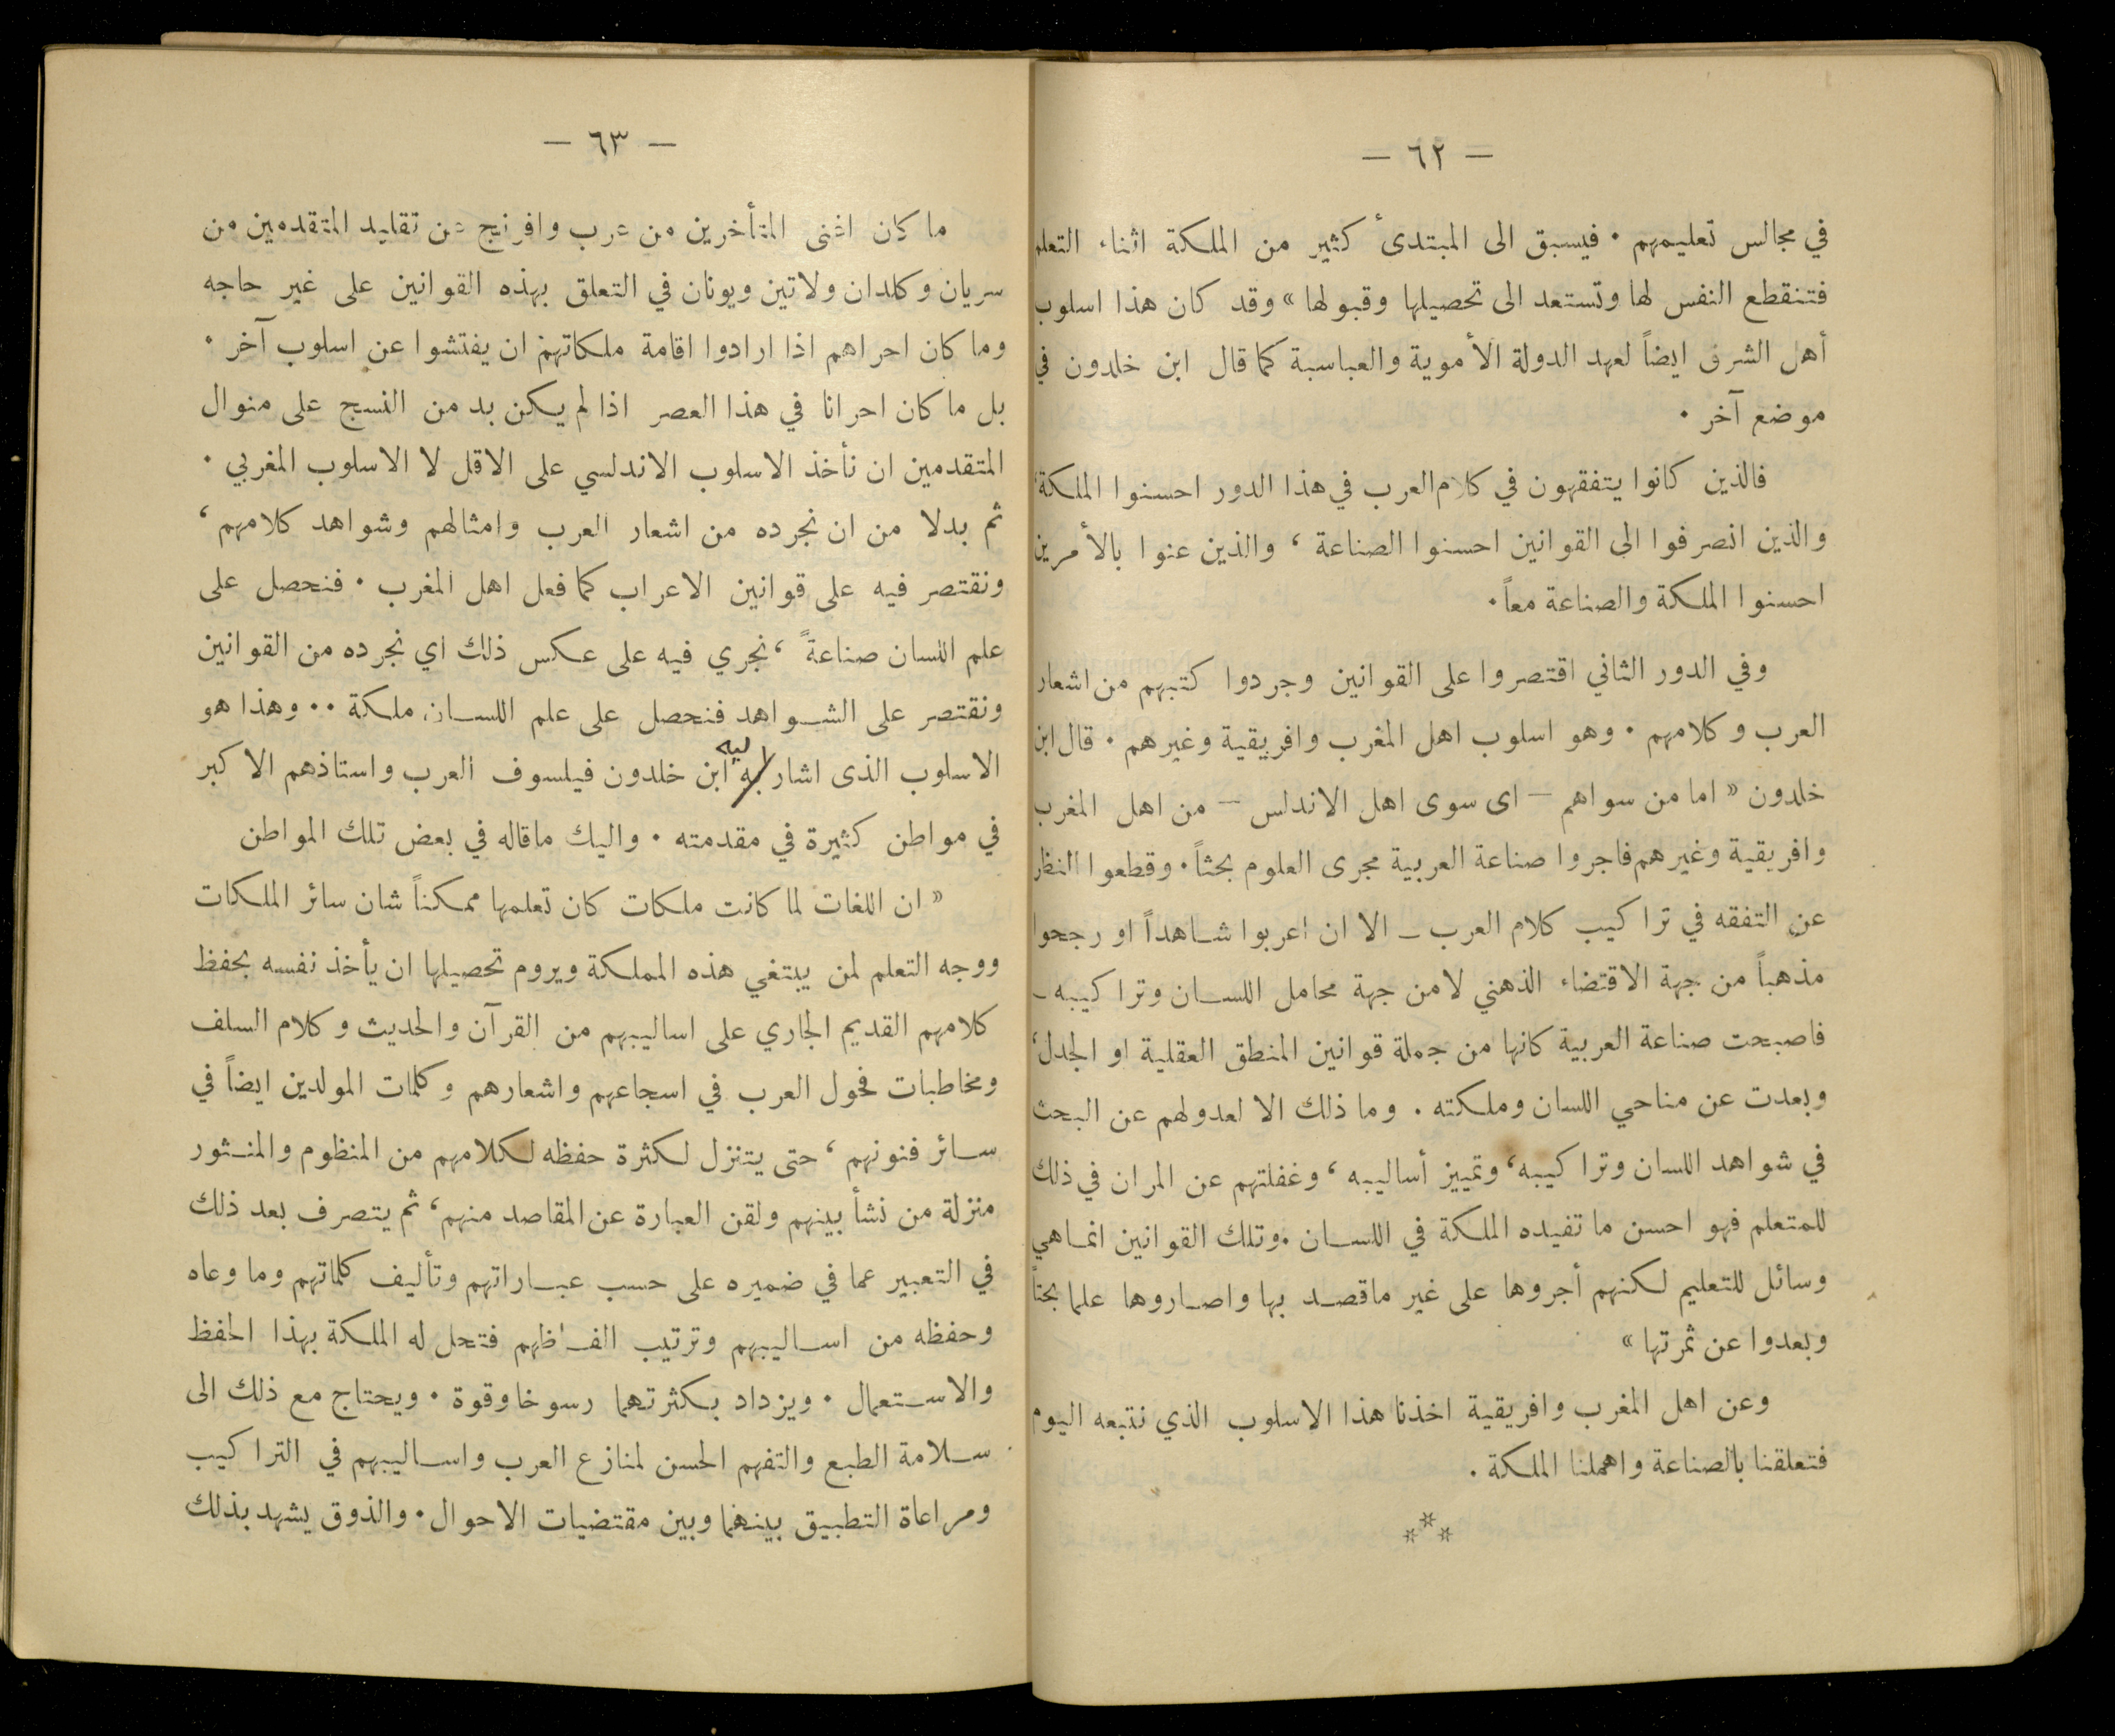 — ٦٢ —
في مجالس تعليمهم . فيسبق الى المبتدئ كثير من الملكة اثناء التعلم
فتنقطع النفس لها وتستعد الى تحصيلها وقبولها » وقد كان هذا اسلوب
أهل الشرق ايضاً لعهد الدولة الأموية والعباسية كما قال ابن خلدون في
موضع آخر .
فالذين كانوا يتفقهون في كلام العرب في هذا الدور احسنوا الملكة،
والذين انصرفوا الى القوانين احسنوا الصناعة ، والذين عنوا بالأمرين
احسنوا الملكة والصناعة معاً .
وفي الدور الثاني اقتصروا على القوانين وجردوا كتبهم من اشعار
العرب وكلامهم . وهو اسلوب اهل المغرب وافريقية وغيرهم . قال ابن
خلدون « اما من سواهم — اى سوى اهل الاندلس — من اهل المغرب
وافريقية وغيرهم فاجروا صناعة العربية مجرى العلوم بحثاً . وقطعوا النظر
عن التفقه في تراكيب كلام العرب — الا ان اعربوا شاهداً او رجحوا
مذهباً من جهة الاقتضاء الذهني لا من جهة محامل اللسان وتراكيبه —
فاصبحت صناعة العربية كانها من جملة قوانين المنطق العقلية او الجدل،
وبعدت عن مناحي اللسان وملكته . وما ذلك الا لعدولهم عن البحث
في شواهد اللسان وتراكيبه، وتمييز أساليبه ، وغفلتهم عن المران في ذلك
للمتعلم فهو احسن ما تفيده الملكة في اللسان . وتلك القوانين انما هي
وسائل للتعليم لكنهم أجروها على غير ماقصد بها واصاروها علما بحتاً
وبعدوا عن ثمرتها »
وعن اهل المغرب وافريقية اخذنا هذا الاسلوب الذي نتبعه اليوم
فتعلقنا بالصناعة واهملنا الملكة .
***
— ٦٣ —
ما كان اغنى المتأخرين من عرب وافرنج عن تقليد المتقدمين من
سريان وكلدان ولاتين ويونان في التعلق بهذه القوانين على غير حاجه
وما كان احراهم اذا ارادوا اقامة ملكاتهم ان يفتشوا عن اسلوب آخر .
بل ما كان احرانا في هذا العصر اذا لم يكن بد من النسج على منوال
المتقدمين ان نأخذ الاسلوب الاندلسي على الاقل لا الاسلوب المغربي .
ثم بدلا من ان نجرده من اشعار العرب وامثالهم وشواهد كلامهم ،
ونقتصر فيه على قوانين الاعراب كما فعل اهل المغرب . فنحصل على
علم اللسان صناعةً ، نجري فيه على عكس ذلك اي نجرده من القوانين
ونقتصر على الشواهد فنحصل على علم اللسان ملكة . . وهذا هو
الاسلوب الذى اشار به اليه ابن خلدون فيلسوف العرب واستاذهم الاكبر
في مواطن كثيرة في مقدمته . واليك ماقاله في بعض تلك المواطن
« ان اللغات لما كانت ملكات كان تعلمها ممكناً شان سائر الملكات
ووجه التعلم لمن يبتغي هذه المملكة ويروم تحصيلها ان يأخذ نفسه بحفظ
كلامهم القديم الجاري على اساليبهم من القرآن والحديث وكلام السلف
ومخاطبات فحول العرب في اسجاعهم واشعارهم وكلمات المولدين ايضاً في
سائر فنونهم ، حتى يتنزل لكثرة حفظه لكلامهم من المنظوم والمنثور
منزلة من نشأ بينهم ولقن العبارة عن المقاصد منهم، ثم يتصرف بعد ذلك
في التعبير عما في ضميره على حسب عباراتهم وتأليف كلماتهم وما وعاه
وحفظه من اساليبهم وترتيب الفاظهم فتحل له الملكة بهذا الحفظ
والاستعمال . ويزداد بكثرتهما رسوخا وقوة . ويحتاج مع ذلك الى
سلامة الطبع والتفهم الحسن لمنازع العرب واساليبهم في التراكيب
ومراعاة التطبيق بينهما وبين مقتضيات الاحوال . والذوق يشهد بذلك